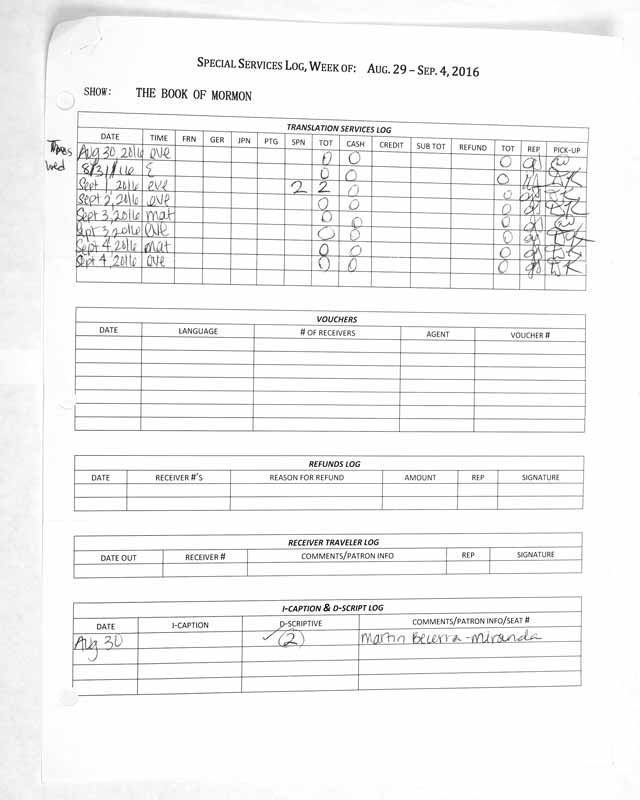 SPECIAL SERVICES LOG, WEEK OF: AUG. 29 – SEP. 4, 2016
SHOW: THE BOOK OF MORMON
TRANSLATION SERVICES LOG
DATE TIME FRN GER JPN PTG SPN TOT CASH CREDIT SUB TOT REFUND TOT REP PICK-UP
Aug 30, 2016 eve 0 0 0
Wed 8/31/16 E 0 0 0
Sept 1, 2016 eve 2 2 0 0
Sept 2, 2016 eve 0 0 0
Sept 3, 2016 mat 0 0 0
Sept 3, 2016 eve 0 0 0
Sept 4, 2016 mat 0 0 0
Sept 4, 2016 eve 0 0 0 DK
VOUCHERS
DATE LANGUAGE # OF RECEIVERS AGENT VOUCHER #
REFUNDS LOG
DATE RECEIVER #'S REASON FOR REFUND AMOUNT REP SIGNATURE
RECEIVER TRAVELER LOG
DATE OUT RECEIVER # COMMENTS/PATRON INFO REP SIGNATURE
I-CAPTION & D-SCRIPT LOG
DATE I-CAPTION D-SCRIPTIVE COMMENTS/PATRON INFO/SEAT #
Aug 30 ✓ (2) Martin Becerra-Miranda